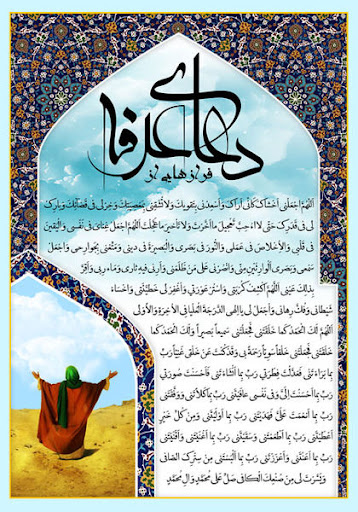 دعای عرفه
فرازهایی از
اَللّهُمَّ اجْعَلْنی اَخْشاکَ کَاَنّی اَراکَ وَاَسْعِدْنی بِتَقویکَ وَلا تُشْقِنی بِمَعْصِیَتِکَ وَخِرْلی فی قَضآئِکَ وَبارِکْ
لی فی قَدَرِکَ حَتّی لا اُحِبَّ تَعْجیلَ ما اَخَّرْتَ وَلا تَاْخیرَ ما عَجَّلْتَ اَللّهُمَّ اجْعَلْ غِنایَ فی نَفْسی وَالْیَقینَ
فی قَلْبی وَالاِْخْلاصَ فی عَمَلی وَالنُّورَ فی بَصَری وَالْبَصیرَةَ فی دینی وَمَتِّعْنی بِجَوارِحی وَاجْعَلْ
سَمْعی وَبَصَری اَلْوارِثَیْنِ مِنّی وَانْصُرْنی عَلی مَنْ ظَلَمَنی وَاَرِنی فیهِ ثاری وَمَاربی وَاَقِرَّ
بِذلِکَ عَیْنی اَللّهُمَّ اکْشِفْ کُرْبَتی وَاسْتُرْ عَوْرَتی وَاغْفِرْ لی خَطیئَتی وَاخْسَاءْ
شَیْطانی وَفُکَّ رِهانی وَاجْعَلْ لی یا اِلهی الدَّرَجَةَ الْعُلْیا فِی الاْخِرَةِ وَالاُْولی
اَللّهُمَّ لَکَ الْحَمْدُ کَما خَلَقْتَنی فَجَعَلْتَنی سَمیعاً بَصیراً وَلَکَ الْحَمْدُ کَما
خَلَقْتَنی فَجَعَلْتَنی خَلْقاً سَوِیّاً رَحْمَةً بی وَقَدْ کُنْتَ عَنْ خَلْقی غَنِیّاً رَبِّ
بِما بَرَاءْتَنی فَعَدَّلْتَ فِطْرَتی رَبِّ بِما اَنْشَاءْتَنی فَاَحْسَنْتَ صُورَتی
رَبِّ بِما اَحْسَنْتَ اِلَیَّ وَفی نَفْسی عافَیْتَنی رَبِّ بِما کَلَاءْتَنی وَوَفَّقْتَنی
رَبِّ بِما اَنْعَمْتَ عَلَیَّ فَهَدَیْتَنی رَبِّ بِما اَوْلَیْتَنی وَمِنْ کُلِّ خَیْرٍ
اَعْطَیْتَنی رَبِّ بِما اَطْعَمْتَنی وَسَقَیْتَنی رَبِّ بِما اَغْنَیْتَنی وَاَقْنَیْتَنی
رَبِّ بِما اَعَنْتَنی وَاَعْزَزْتَنی رَبِّ بِما اَلْبَسْتَنی مِنْ سِتْرِکَ الصّافی
وَیَسَّرْتَ لی مِنْ صُنْعِکَ الْکافی صَلِّ عَلی مُحَمَّدٍ وَآلِ مُحَمَّدٍ